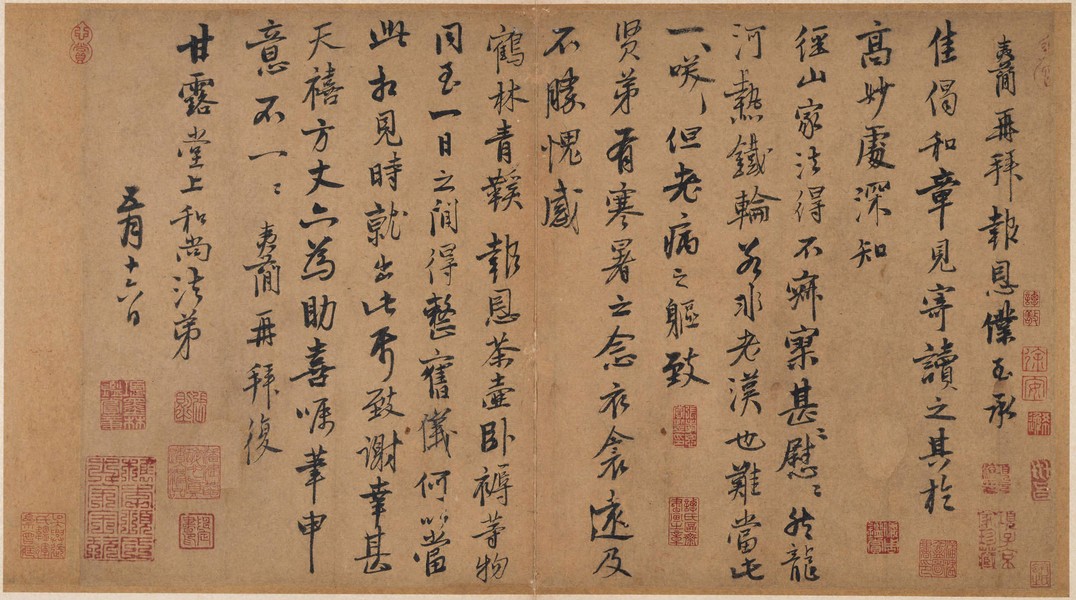 夷簡再拜報恩僕至承
佳偈和章見寄讀之其於
高妙處深知
徑山家法得不寂寞甚〻慰〻然龍
河熱鐵輪若非老漢也難當此
一𠲒但老病之軀致
賢弟有寒暑之念衣衾遠及
不勝愧感
鶴林青鞋報恩茶壺臥褥等物
同至一日之間得整舊儀何以當
此相見時就出此爲致謝幸甚
天禧方丈亦為助喜囑筆申
意不一〻夷簡再拜復
甘露堂上和尚法弟
五月十六日